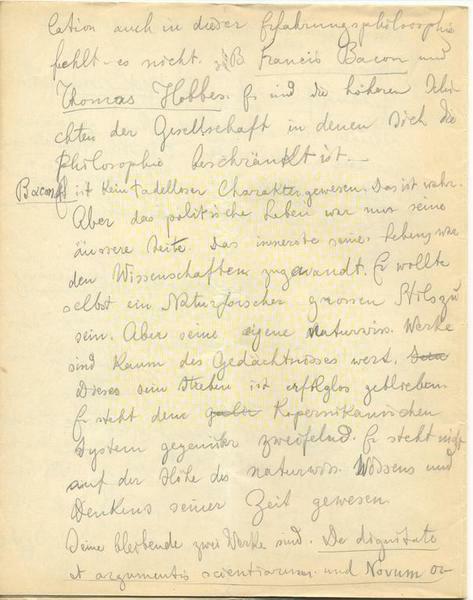 lation auch in dieser Erfahrungsphilosophie
fehlt es nicht. z.B. Francis Bacon und
Thomas Hobbes. Es sind die höheren Schi-
chten der Gesellschaft in denen sich die
Philosophie beschränkt ist.—
Bacon ist kein tadelloser Charakter gewesen. Das ist wahr.
Aber das politische Leben war nur seine
äussere Seite. Das innerste seines Lebens war
den Wissenschaften zugewandt. Er wollte
selbst ein Naturforscher grossen Stils zu
sein. Aber seine eigene naturwiss. Werke
sind kaum des Gedächtnisses wert.
Dieses sein Streben ist erfolglos geblieben.
Er steht dem Kopernikanischen
System gegenüber zweifelnd. Er steht nicht
auf der Höhe des naturwiss. Wissens und
Denkens seiner Zeit gewesen.
Seine bleibende zwei Werke sind. De dignitate
et argumentis scientiarum und Novum or-